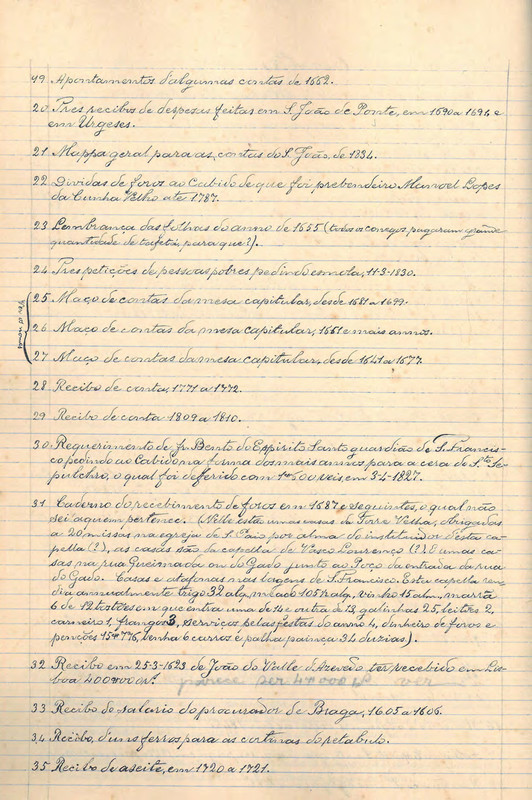 19 Apontamentos d'algumas contas de 1662.
20 Tres recibos de despesas feitas em S. João de Ponte, em 1690 a 1694 e
em Urgeses.
21 Mappa geral para as contas do S. João, de 1834.
22 Dividas de foros ao Cabido de que foi prebendeiro Manoel Lopes
da Cunha Velho até 1787.
23 Lembrança das folhas do anno de 1655 (todos os conegos pagaram grande
quantidade de tafetá, para que?).
24 Tres petições de pessoas pobres, pedindo esmola, 11-3-1830.
25 Maço de contas da mesa capitular, desde 1681 a 1699.
26 Maço de contas da mesa capitular, 1661 e mais annos.
27 Maço de contas da mesa capitular, desde 1641 a 1677.
28 Recibo de conta, 1771 a 1772.
29 Recibo de conta 1809 a 1810.
30 Requerimento de fr. Bento do Espirito Santo guardião de S. Francis-
co pedindo ao Cabido na forma dos mais annos para a cera do S.to Se-
pulchro, o qual foi deferido com 1\*\*\*600 reis em 3-4-1827.
31 Caderno do recebimento de foros em 1687 e seguintes, o qual não
sei a quem pertence. (Nelle estão umas casas da Torre Velha, obrigadas
a 20 missas na egreja de S. Paio por alma do instituidor d'esta ca-
pella (?), as casas são da capella de Vasco Lourenço (?) E umas ca-
sas na rua Queimada ou do Gado junto ao Poço da entrada da rua
do Gado. Casas e atafonas nas lagens de S. Francisco. Esta capella ren-
dia annualmente trigo 32 alq, meado 105 ½ alq, vinho 15 alm, marrã
6 de 12 tostões em que entra uma de 14 e outra de 13, galinhas 25, leitões 2,
carneiro 1, frangos 3, serviços pelas festas do anno 4, dinheiro de foros e
penções 15\*\*\*776, lenha 6 carros e palha painça 34 duzias).
32 Recibo em 25-3-1623 de João do Valle d'Azevedo ter recebido em Lis-
boa 400\*000 rs. parece ser 4\*000 ver
33 Recibo de salario do procurador de Braga, 1605 a 1606.
34 Recibo, d'uns ferros para as cortinas do retabulo.
35 Recibo de aseite, em 1720 a 1721.